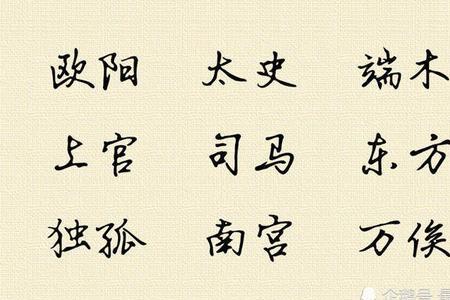 欧阳 太史 端木
上官 司马 东方
独孤 南宫 万俟
企鹅号